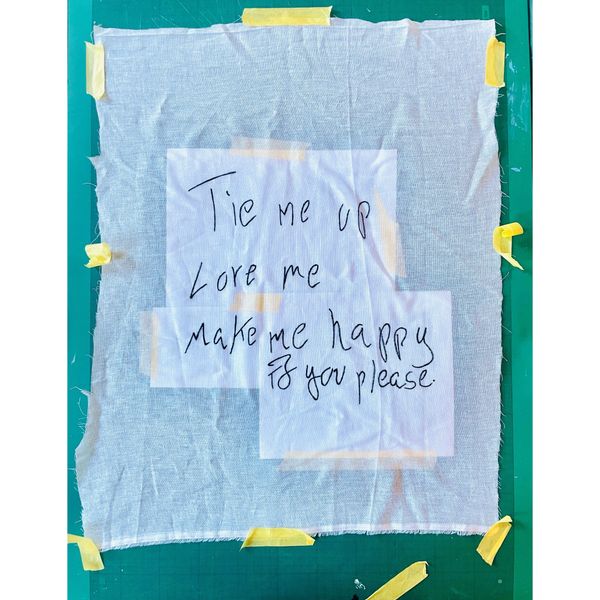 Tie me up
Love me
make me happy
if you please.